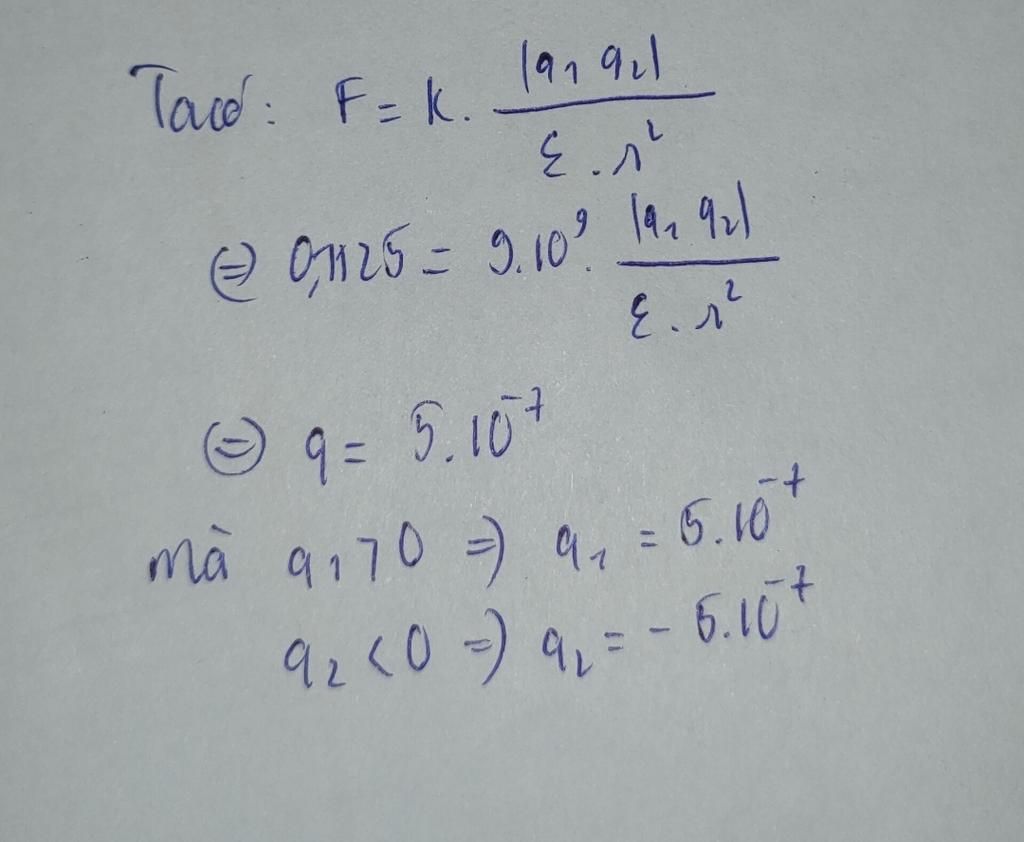 Ta có: F = k. |q₁ q₂| / ε . r²
⇔ 0,1125 = 9.10⁹. |q₁ q₂| / ε . r²
⇔ q = 5.10⁻⁷
mà q₁ > 0 ⇒ q₁ = 5.10⁻⁷
q₂ < 0 ⇒ q₂ = - 5.10⁻⁷